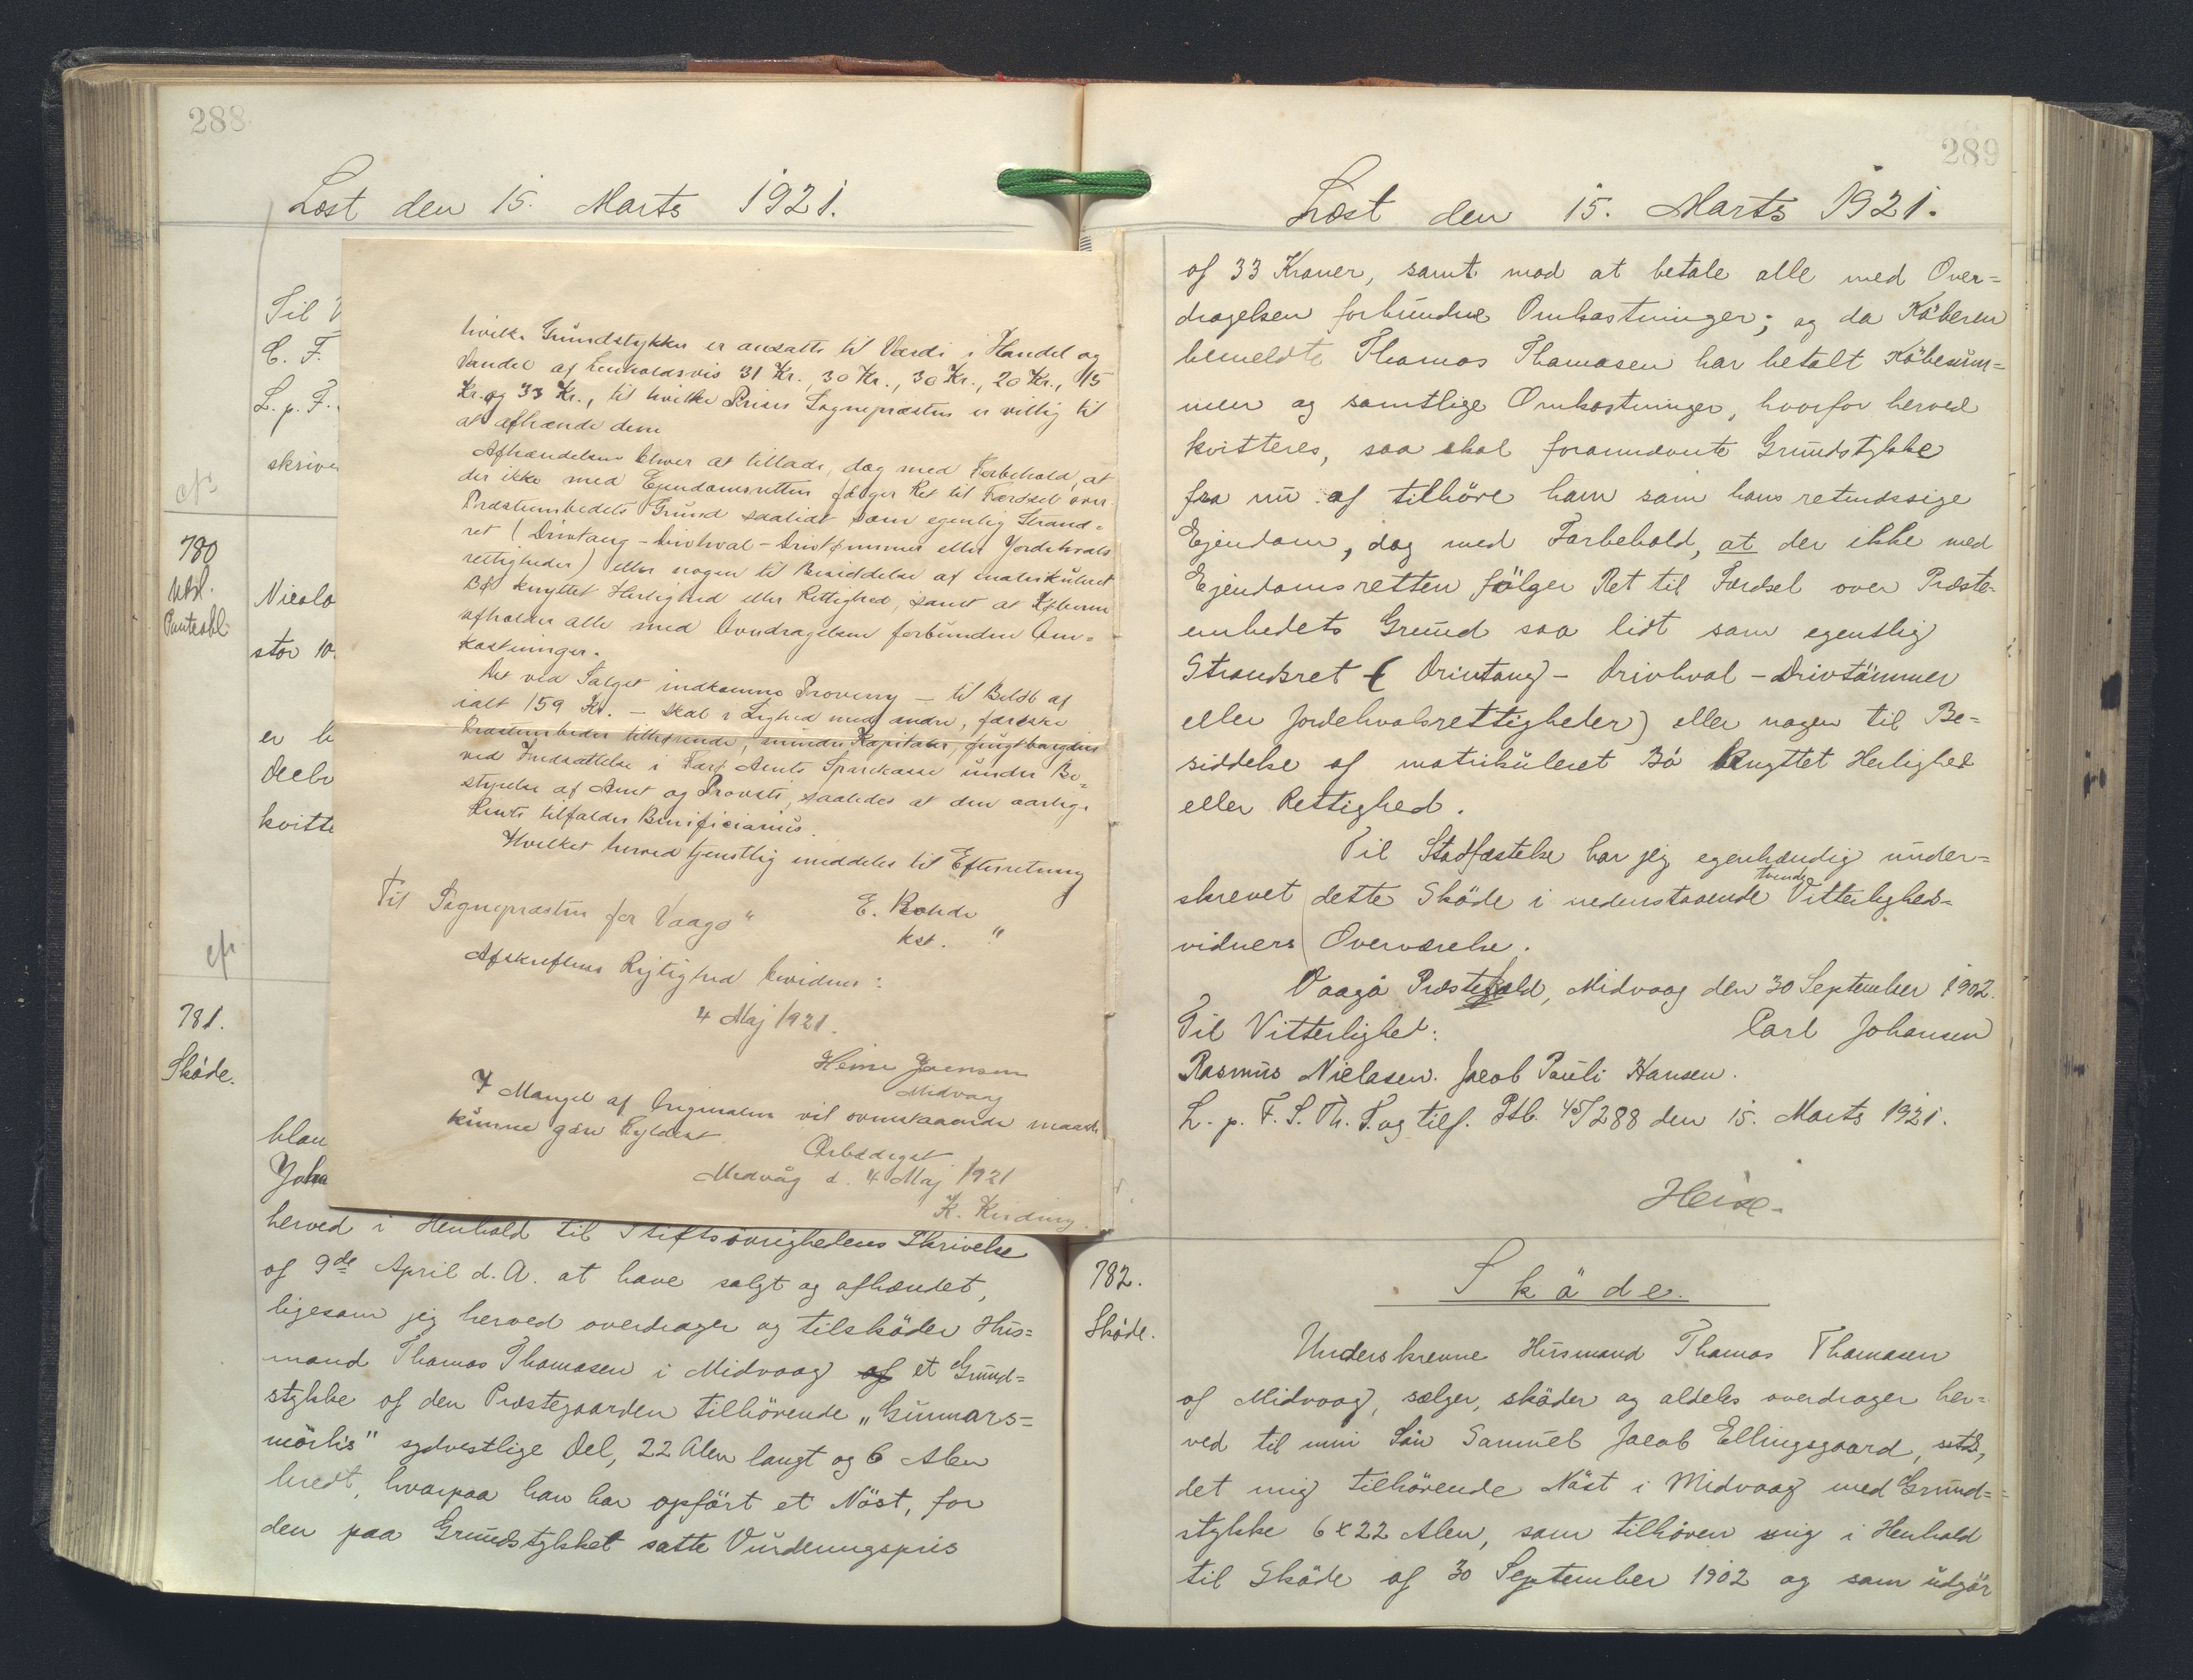 288
Læst den 15. Marts 1921.
Til V
C. F.
L. p. F.
skrive
780
Panteobl.
Nicola
stor 10
er b
Decbr
kvitte
781.
Sköde.
blau
Joha
hvilke Grundstykker er ansatte til Værdi i Handel og
Vandel af henholdsvis 31 Kr., 30 Kr., 30 Kr., 20 Kr., 15
Kr. og 33 Kr., til hvilke Priser Sognepræsten er villig til
at afhænde dem
Afhændelsen bliver at tillade, dog med Forbehold, at
der ikke med Ejendomsretten følger Ret til Færdsel over
Præsteembedets Grund saalidt som egentlig Strand=
ret (Drivtang - Drivhval - Drivtømmer eller Jordehvals
rettigheder) eller nogen til Besiddelse af matrikuleret
Bø knyttet Herlighed eller Rettighed, samt at Køberne
afholder alle med Overdragelsen forbundne Om=
kostninger.
Det ved Salget indkomne Provenu - til Beløb af
ialt 159 Kr. - skal i Lighed med andre, færøske
Præsteembeder tilhørende, mindre Kapitaler, frugtbargøres
ved Indsættelse i Færø Amts Sparekasse under Be=
styrelse af Amt og Provsti, saaledes at den aarlige
Rente tilfalder Beneficiarius.
Hvilket herved tjenstlig meddeles til Efterretning
E. Bohde
kst. "
Til Sognepræsten for Vaagø "
Afskriftens Rigtighed bevidner:
4 Maj 1921.
Heine Joensen
Midvaag
I Mangel af Originalen vil ovenstaaende maaske
kunne gøre Fyldest.
Ærbødigst
Midvåg d. 4 Maj 1921
herved i Henhold til Stiftsövrighedens Skrivelse
af 9de April d. A. at have solgt og afhændet,
ligesom jeg herved overdrager og tilsköder Hus=
mand Thomas Thomasen i Midvaag af et Grund=
stykke af den Præstegaarden tilhörende "Gunnars=
mörlis" sydvestlige Del, 22 Alen langt og 6 Alen
bredt, hvorpaa han har opfört et Nöst, for
den paa Grundstykket satte Vurderingspris
289
Læst den 15. Marts 1921.
af 33 Kroner, samt mod at betale alle med Over=
dragelsen forbundne Omkostninger; og da Köberen
bemeldte Thomas Thomasen har betalt Köbesum=
men og samtlige Omkostninger, hvorfor herved
kvitteres, saa skal forannævnte Grundstykke
fra nu af tilhöre ham som hans retmæssige
Ejendom, dog med Forbehold, at der ikke med
Ejendomsretten fölger Ret til Færdsel over Præste-
embedets Grund saa lidt som egentlig
Strandsret ( Drivtang - Drivhval - Drivtömmer
eller Jordehvalsrettigheder) eller nogen til Be=
siddelse af matrikuleret Bö knyttet Herlighed
eller Rettighed.
Til Stadfæstelse har jeg egenhændig under=
skrevet dette Sköde i nedenstaaende tvende Vitterligheds=
vidners Overværelse.
Vaagö Præstegæld, Midvaag den 30 September 1902.
Til Vitterlighed: Carl Johansen
Rasmus Nielasen. Jacob Pauli Hansen.
L. p. F. S. Th. T. og tilf. Ptb. 45/288 den 15. Marts 1921.
Heise.
782.
Sköde.
Sköde.
Underskrevne Husmand Thomas Thomasen
af Midvaag, sælger, sköder og aldeles overdrager her=
ved til min Sön Samuel Jacob Ellingsgaard, sstds,
det mig tilhörende Nöst i Midvaag med Grund=
stykke 6 x 22 Alen, som tilhörer mig i Henhold
til Sköde af 30 September 1902 og som udgör